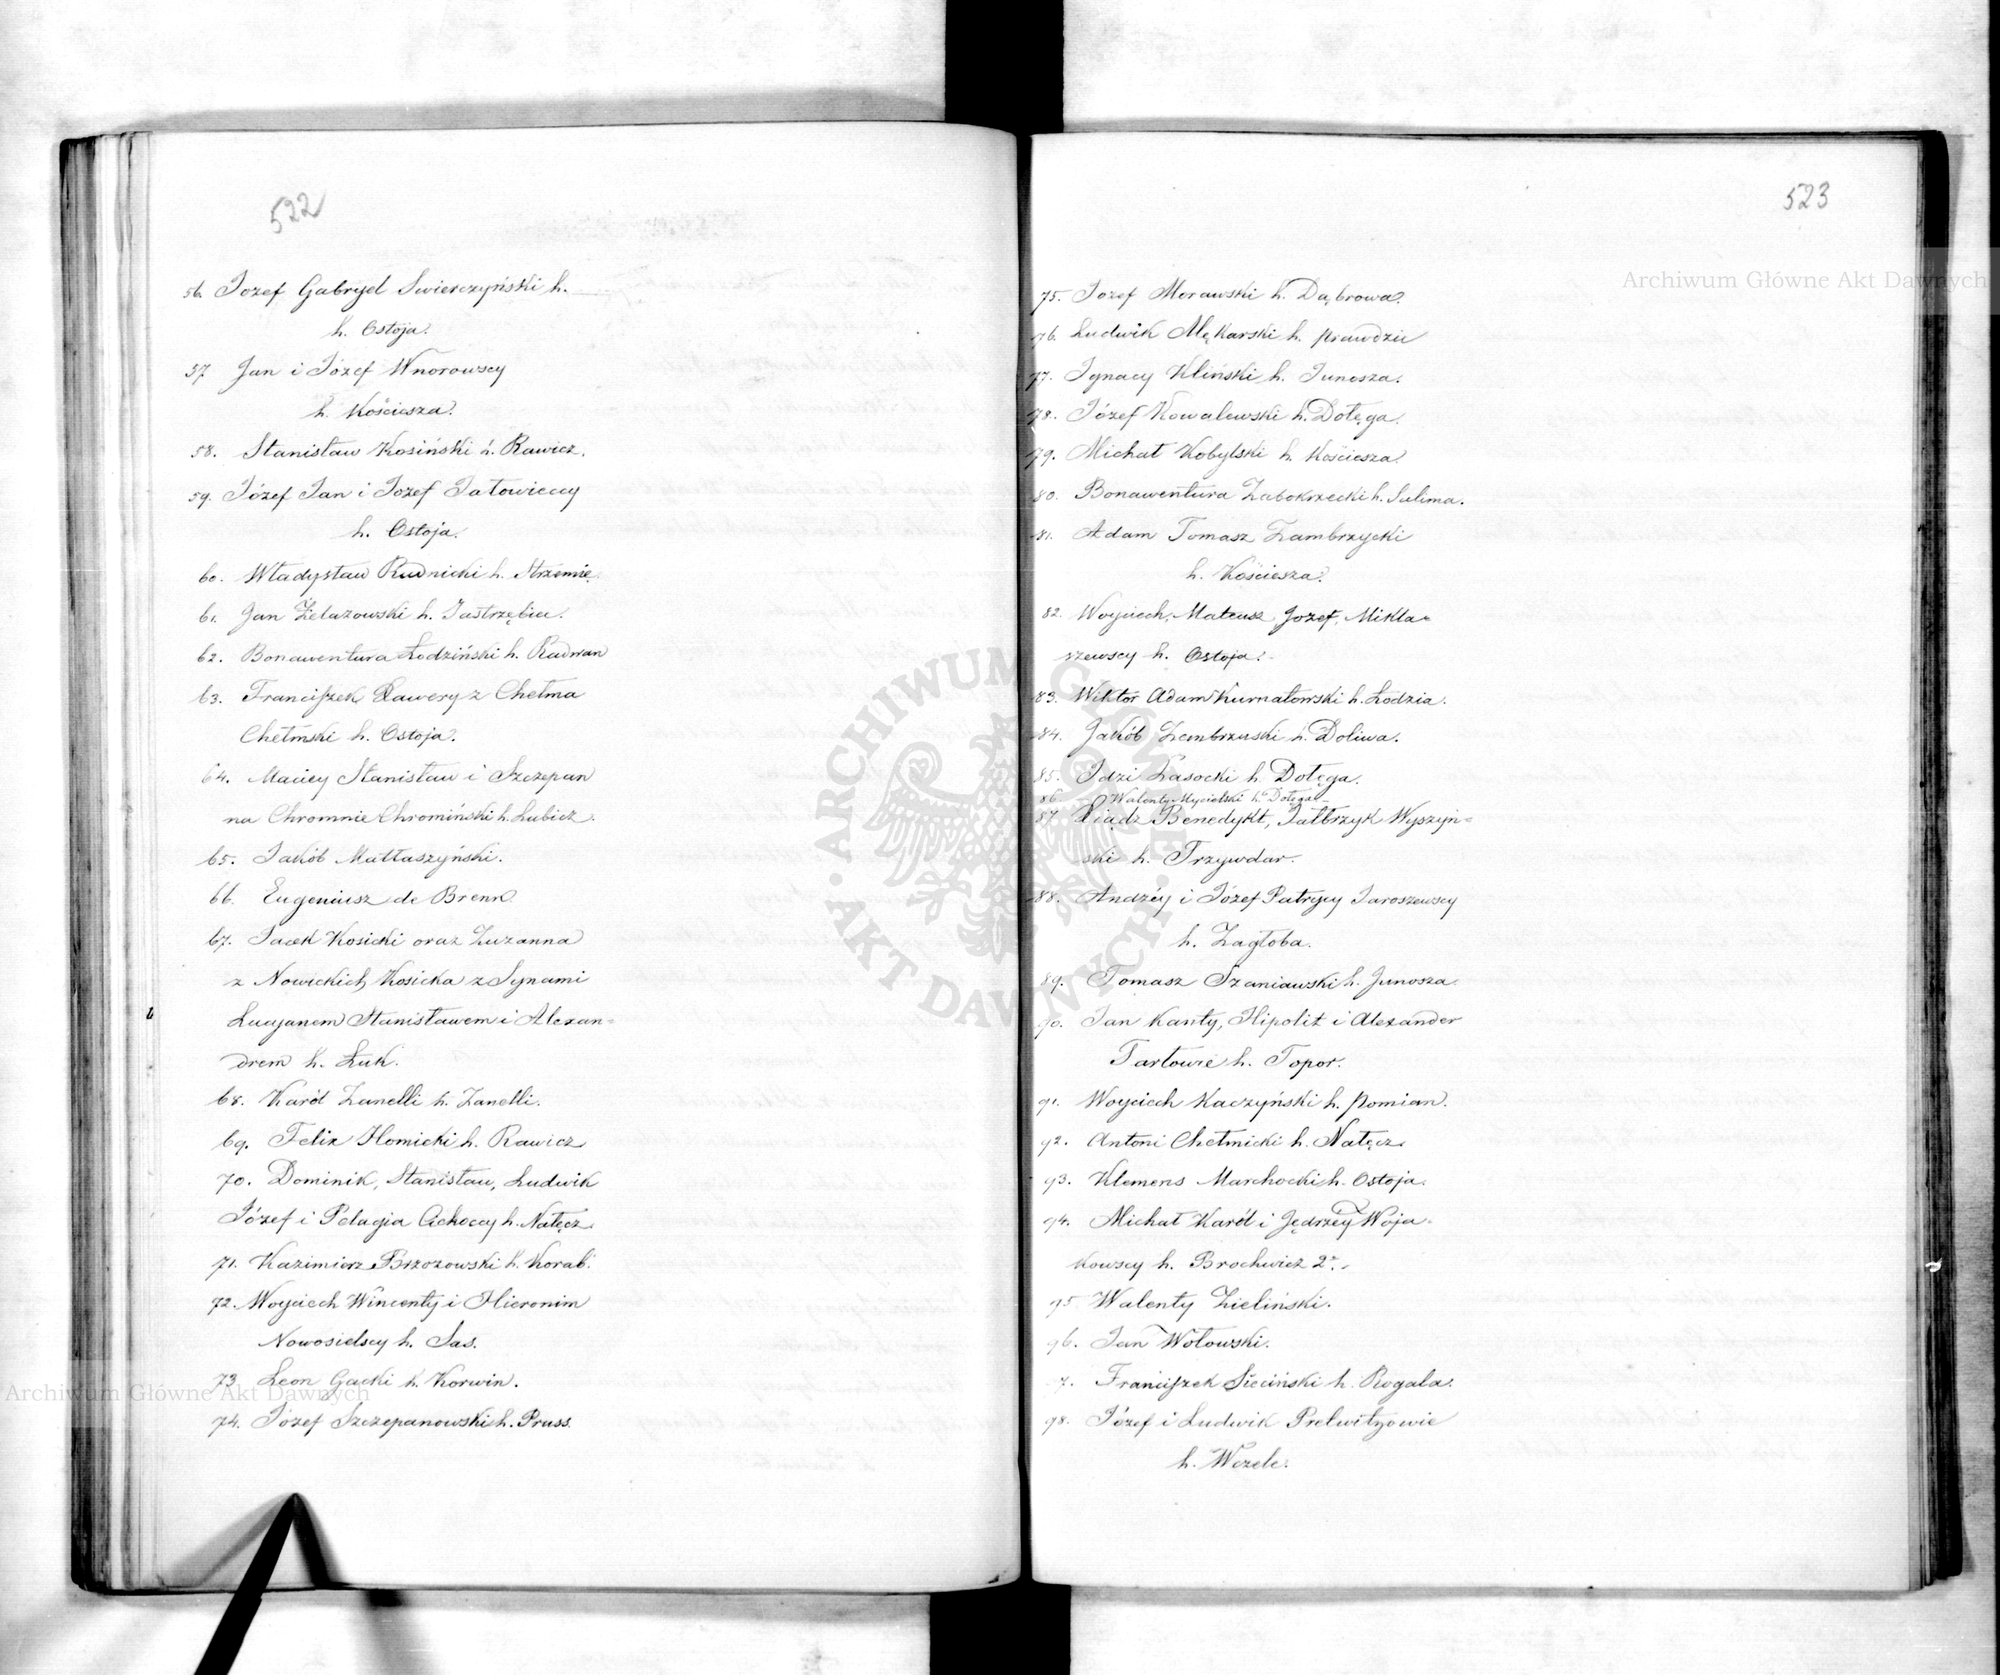 522
56. Jozef Gabryel Swierczyński h.
h. Ostoja.
57 Jan i Józef Wnorowscy
h. Kościesza.
58. Stanisław Kosiński h. Rawicz.
59. Józef Jan i Jozef Jatowieccy
h. Ostoja.
60. Władysław Rudnicki h. Strzemie.
61. Jan Żelazowski h. Jastrzębiec.
62. Bonawentura Łodziński h. Radwan
63. Franciszek Xawery z Chełma
Chełmski h. Ostoja.
64. Maciey Stanisław i Szczepan
na Chromnie Chromiński h. Lubicz.
65. Jakób Mattaszyński.
66. Eugeniusz de Brenn
67. Jacek Kosicki oraz Zuzanna
z Nowickich Kosicka z Synami
Lucyanem Stanisławem i Alexan=
drem h. Łuk.
68. Karól Zanelli h. Zanelli.
69. Felix Słomicki h. Rawicz
70. Dominik, Stanisław, Ludwik
Józef i Pelagia Cichoccy h. Nałęcz
71. Kazimierz Brzozowski h. Korab.
72. Woyciech Wincenty i Hieronim
Nowosielscy h. Sas.
73 Leon Gacki h. Korwin.
74. Józef Szczepanowski h. Pruss.
523
75. Jozef Morawski h. Dąbrowa.
76. Ludwik Mękarski h. prawdzic
77. Ignacy Kliński h. Junosza.
78. Józef Kowalewski h. Dołęga.
79. Michał Kobylski h. Kościesza.
80. Bonawentura Zabokrzecki h. Sulima.
81. Adam Tomasz Zambrzycki
h. Kościesza.
82. Woyciech, Mateusz, Jozef, Mikla=
szewscy h. Ostoja.
83. Wiktór Adam Kurnatowski h. Łodzia.
84. Jakób Zembrzuski h. Doliwa.
85. Idzi Lasocki h. Dołęga.
86. Walenty Mycielski h. Dołęga
87. Xiądz Benedykt, Jałbrzyk Wyszyń=
ski h. Trzywdar.
88. Andzéy i Józef Patrycy Jaroszewscy
h. Zagłoba.
89. Tomasz Szaniawski h. Junosza.
90. Jan Kanty, Hipolit i Alexander
Tarłowie h. Topor.
91. Woyciech Kaczyński h. pomian.
92. Antoni Chełmicki h. Nałęcz.
93. Klemens Marchocki h. Ostoja.
94. Michał Karól i Jędrzey Woja-
kowscy h. Brochwicz 2o.
95 Walenty Zieliński.
96. Jan Wołowski.
7. Franciszek Sieciński h. Rogala.
98. Józef i Ludwik Pretwitzowie
h. Wczele.
Archiwum Główne Akt Dawnych
Archiwum Główne Akt Dawnych
ARCHIWUM GŁÓWNE AKT DAWNYCH